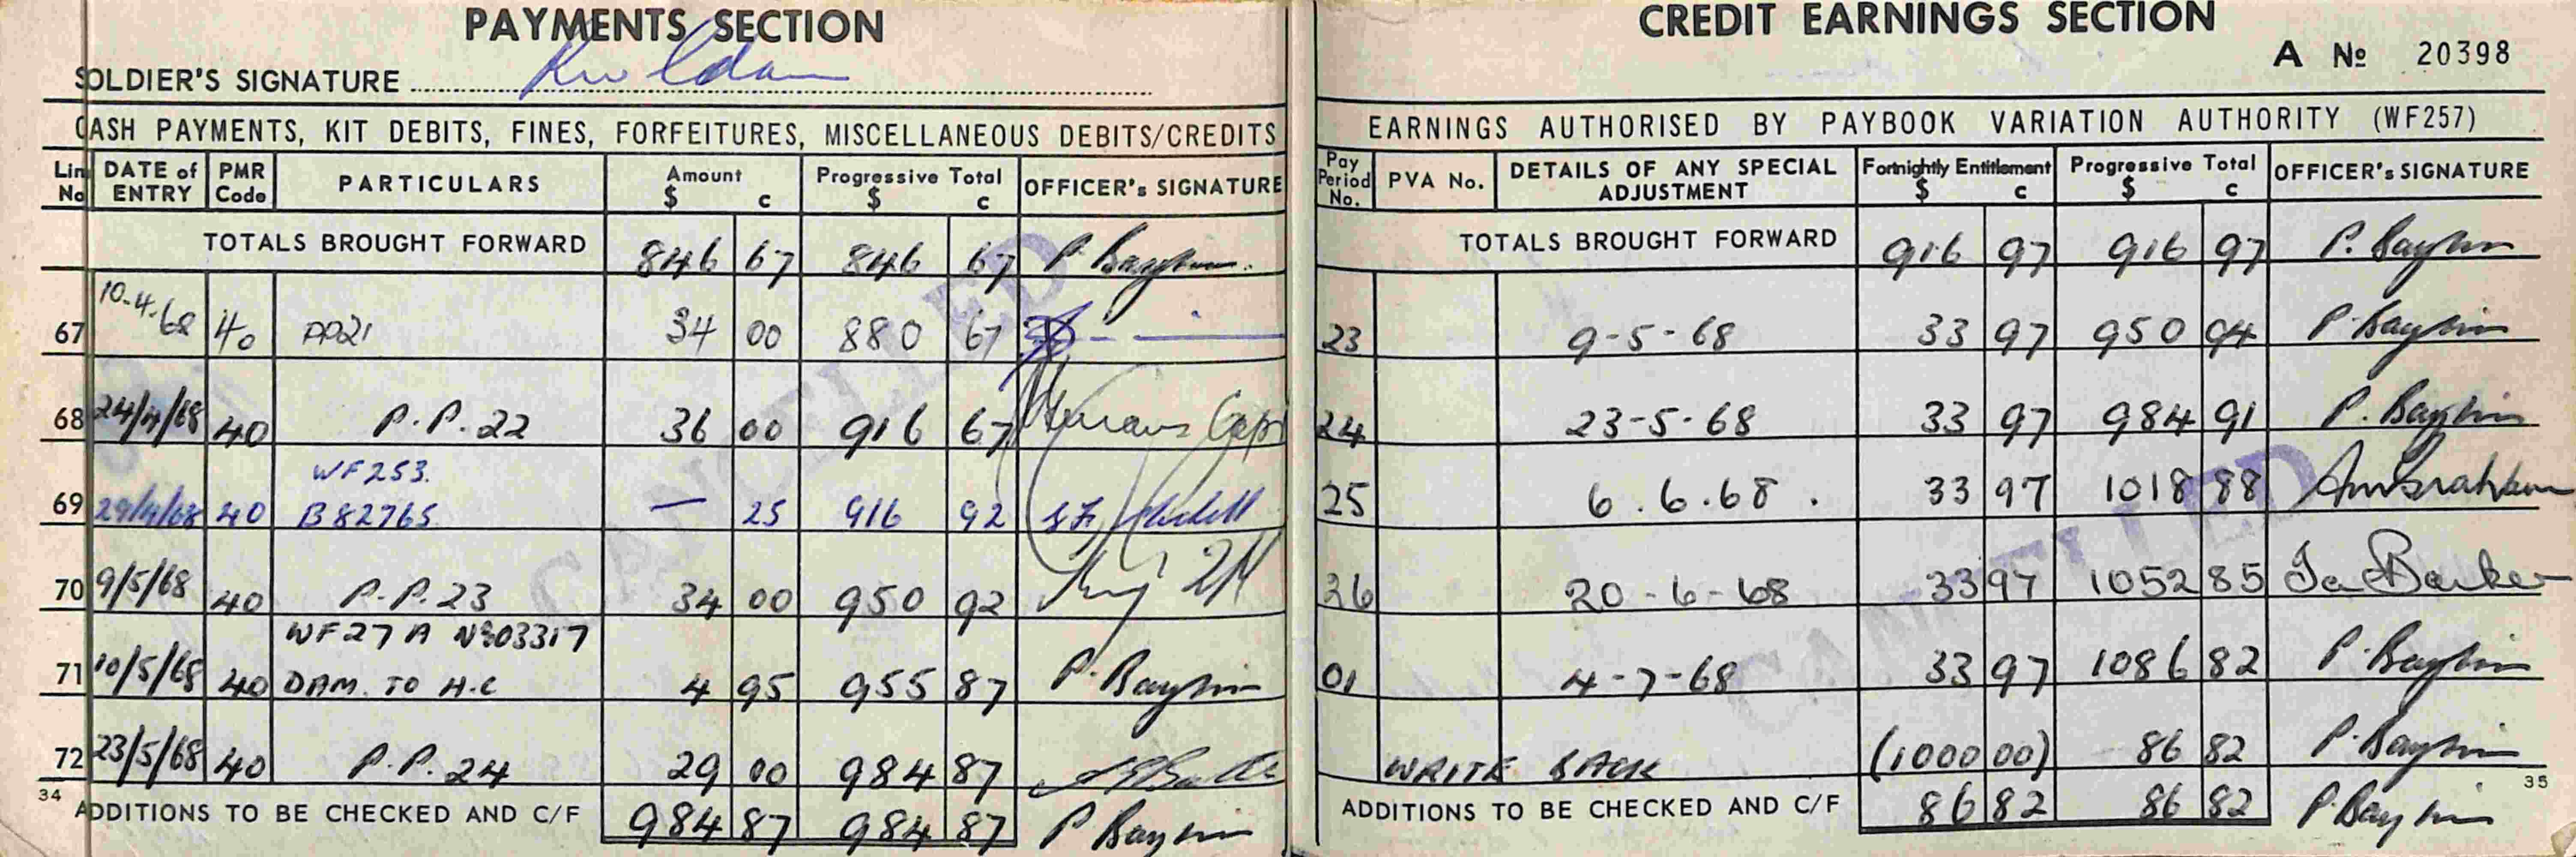 PAYMENTS SECTION
SOLDIER'S SIGNATURE
CASH PAYMENTS, KIT DEBITS, FINES, FORFEITURES, MISCELLANEOUS DEBITS/CREDITS
Lin No DATE of ENTRY PMR Code PARTICULARS Amount $ c Progressive Total $ c OFFICER's SIGNATURE
TOTALS BROUGHT FORWARD 846 67 846 67 P. Bayhim
67 10-4-68 40 PP21 34 00 880 67
68 24/4/68 40 P.P. 22 36 00 916 67 Capt
69 29/4/68 40 WF253. B82765 — 25 916 92
70 9/5/68 40 P.P. 23 34 00 950 92
71 10/5/68 40 WF27A No03317 DAM. TO H.C 4 95 955 87 P. Bayhim
72 23/5/68 40 P.P. 24 29 00 984 87
34 ADDITIONS TO BE CHECKED AND C/F 984 87 984 87 P Bayhim
CANCELLED
CREDIT EARNINGS SECTION
A No 20398
EARNINGS AUTHORISED BY PAYBOOK VARIATION AUTHORITY (WF257)
Pay Period No. PVA No. DETAILS OF ANY SPECIAL ADJUSTMENT Fortnightly Entitlement $ c Progressive Total $ c OFFICER's SIGNATURE
TOTALS BROUGHT FORWARD 916 97 916 97 P. Bayhim
23 9-5-68 33 97 950 94 P. Bayhim
24 23-5-68 33 97 984 91 P. Bayhim
25 6.6.68. 33 97 1018 88
26 20-6-68 33 97 1052 85 Barker
01 4-7-68 33 97 1086 82 P. Bayhim
WRITE BACK (1000 00) 86 82 P. Bayhim
ADDITIONS TO BE CHECKED AND C/F 86 82 86 82 P Bayhim
35
CANCELLED